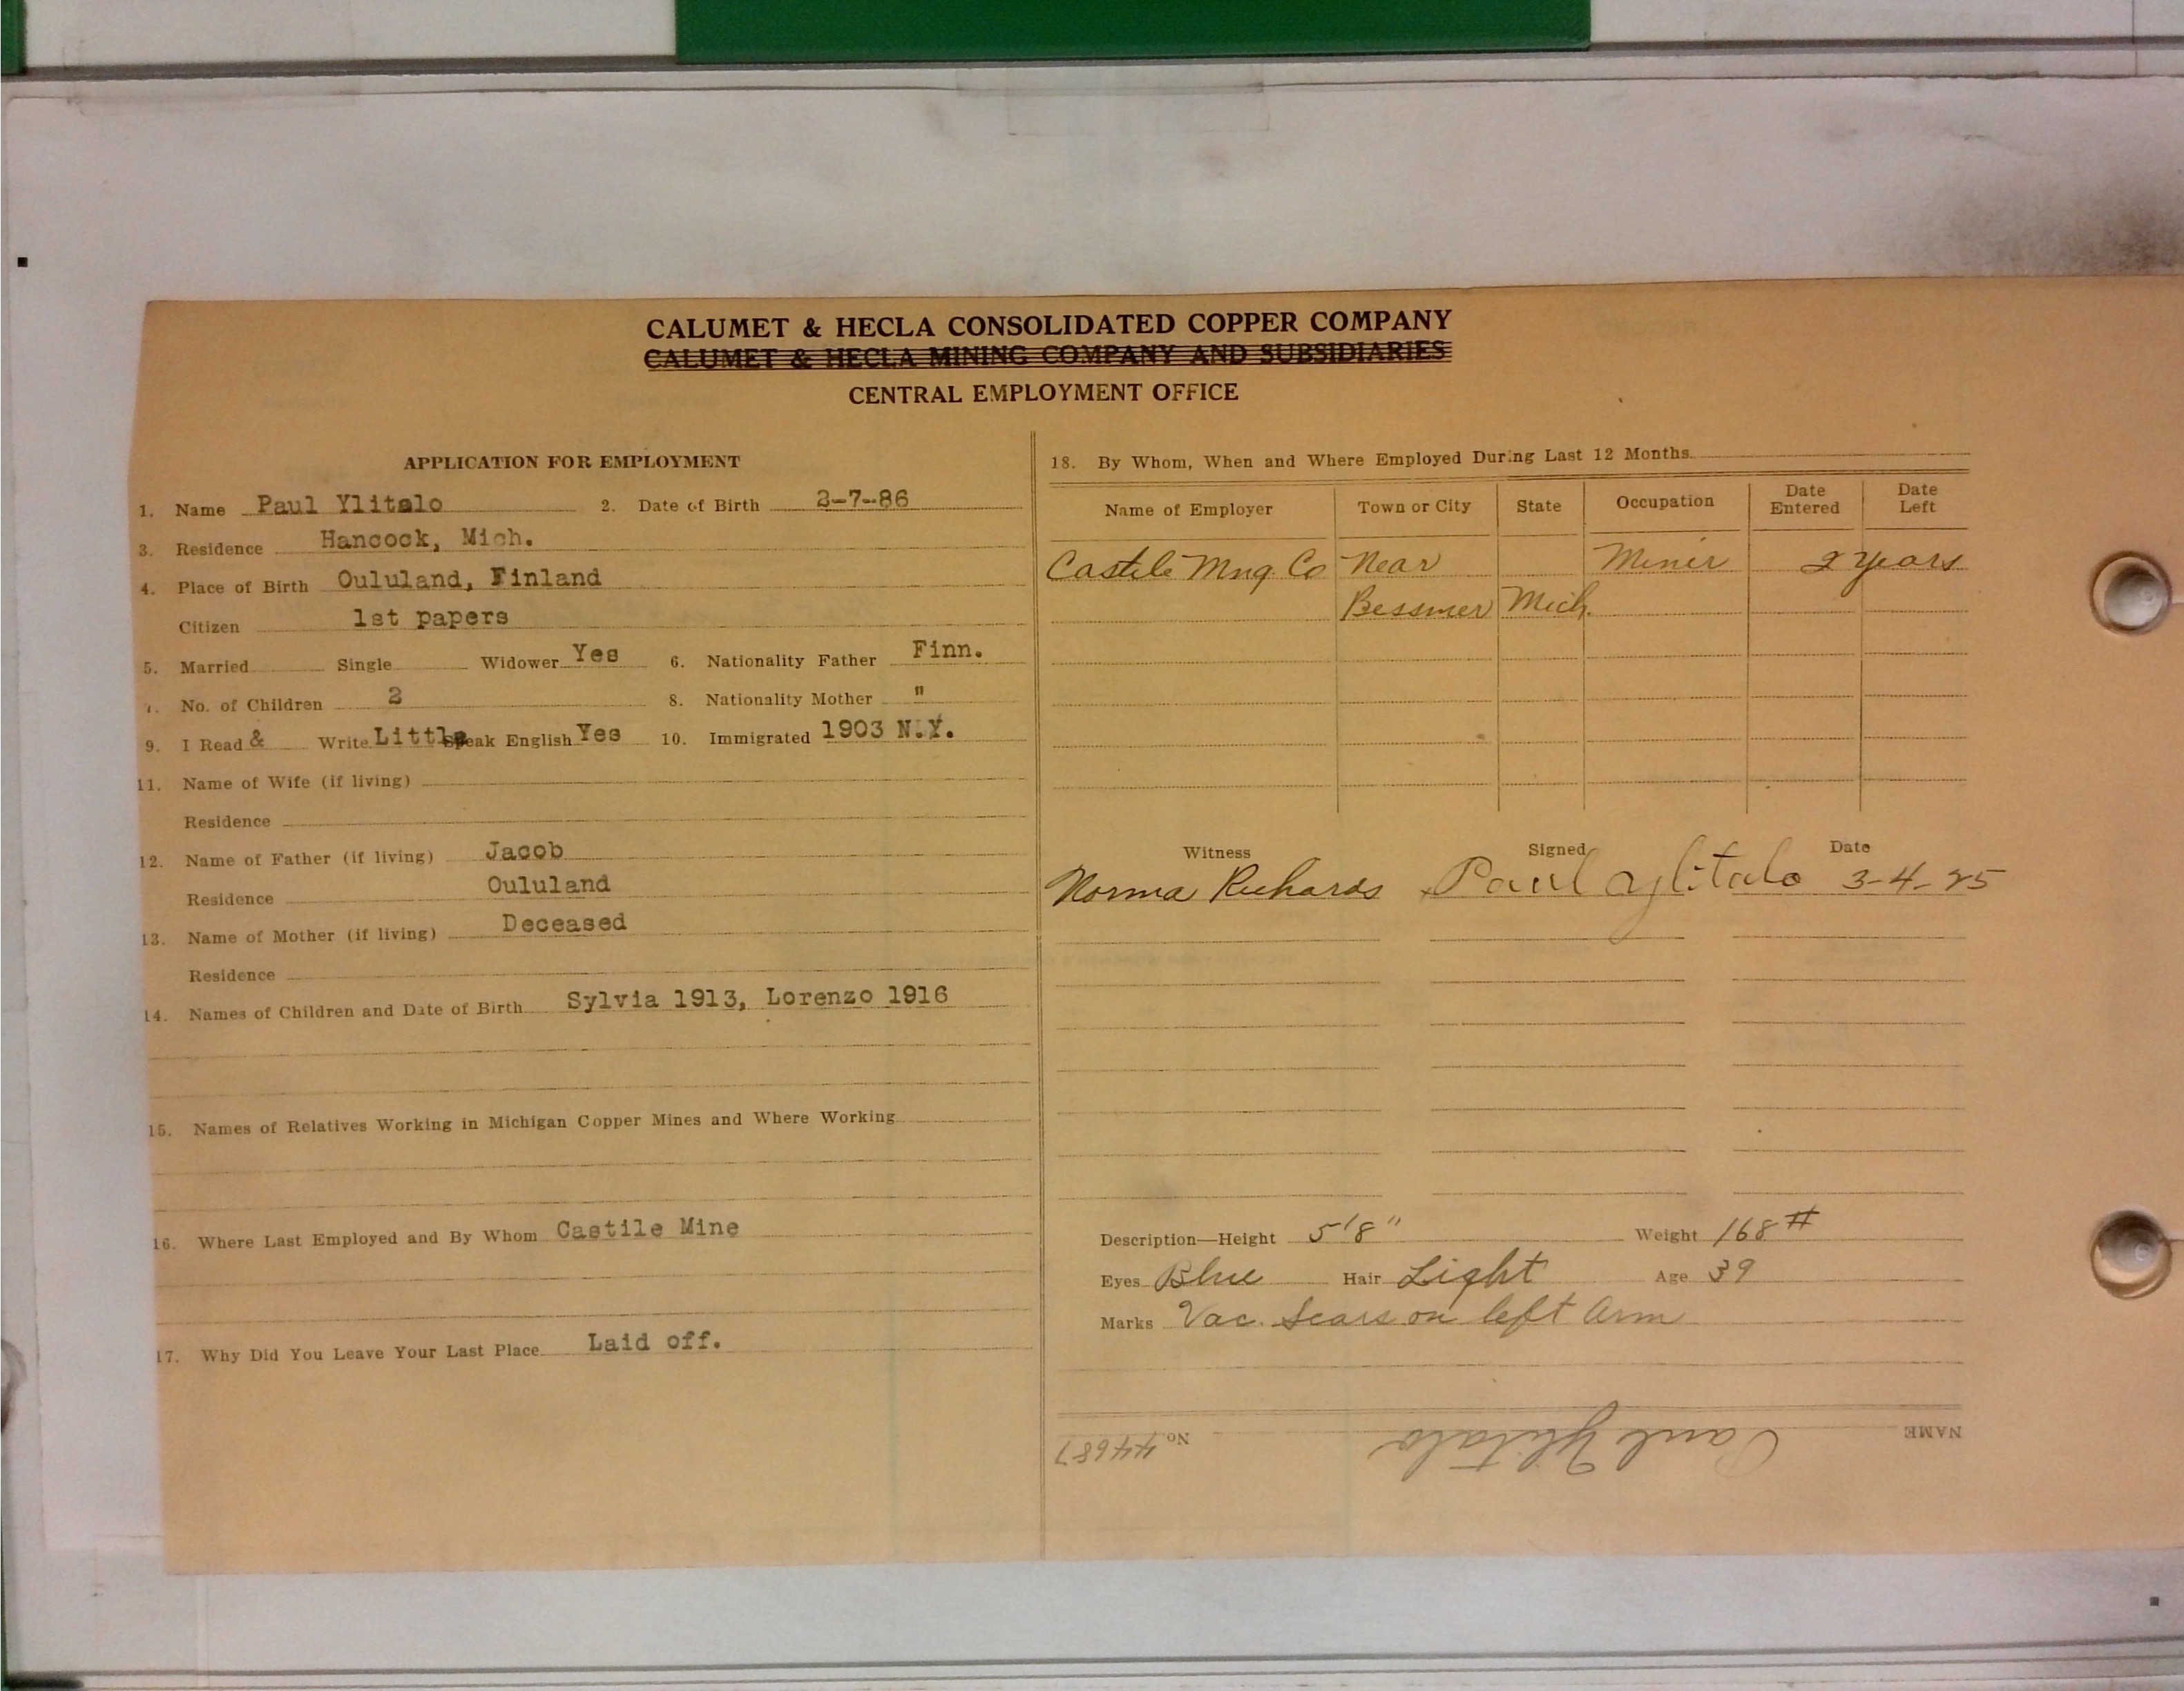 CALUMET & HECLA CONSOLIDATED COPPER COMPANY
CALUMET & HECLA MINING COMPANY AND SUBSIDIARIES
CENTRAL EMPLOYMENT OFFICE
APPLICATION FOR EMPLOYMENT
1. Name Paul Ylitalo 2. Date of Birth 2-7-86
3. Residence Hancock, Mich.
4. Place of Birth Oululand, Finland
Citizen 1st papers
5. Married Single Widower Yes 6. Nationality Father Finn.
7. No. of Children 2 8. Nationality Mother "
9. I Read & Write Little Speak English Yes 10. Immigrated 1903 N.Y.
11. Name of Wife (if living)
Residence
12. Name of Father (if living) Jacob
Residence Oululand
13. Name of Mother (if living) Deceased
Residence
14. Names of Children and Date of Birth Sylvia 1913, Lorenzo 1916
15. Names of Relatives Working in Michigan Copper Mines and Where Working
16. Where Last Employed and By Whom Castile Mine
17. Why Did You Leave Your Last Place Laid off.
18. By Whom, When and Where Employed During Last 12 Months
Name of Employer Town or City State Occupation Date Entered Date Left
Castile Mng. Co Near Miner 2 years
Bessmer Mich.
Witness Signed Date
Norma Richards Paul Ylitalo 3-4-25
Description—Height 5'8" Weight 168#
Eyes Blue Hair Light Age 39
Marks Vac. Scars on left arm
NAME Paul Ylitalo No 44687